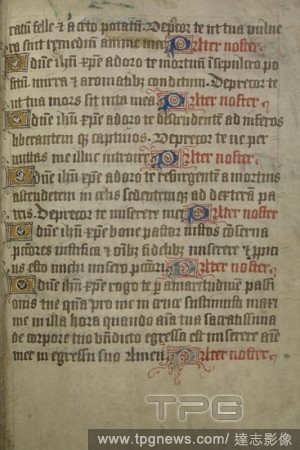 ratum felle & aceto potatum. Deprecor te ut tua vulne
ra sint remedium anime mee Pater noster.
O dne ihu xpe adoro te mortuum i sepulcro po
situm mirra et aromatibus conditum. Deprecor te
ut tua mors sit vita mea. Pater noster.
O dne ihu xpe adoro te descendente ad inferos
liberantem q captivos. Deprecor te ne per
mittas me illuc introire Pater noster.
O dne ihu xpe adoro te resurgente a mortuis
ascendetem in celis sedentem q ad dexteram pa
tris. Deprecor te miserere mei Pater noster
O dne ihu xpe bone pastor iustos conserva
peccores iustifica et oibz fidelibz miserere & ppici
us esto michi misero pctori Pater noster.
O dne ihu xpe rogo te p amaritudine passi
onis tue qua pro me in cruce sustinuisti maxi
me in illa hora quando aia tua sacratissima
de corpore tuo bndicto egressa est miserere aie
mee in egressu suo Amen. Pater noster.
TPG
www.tpgnews.com/ 達志影像